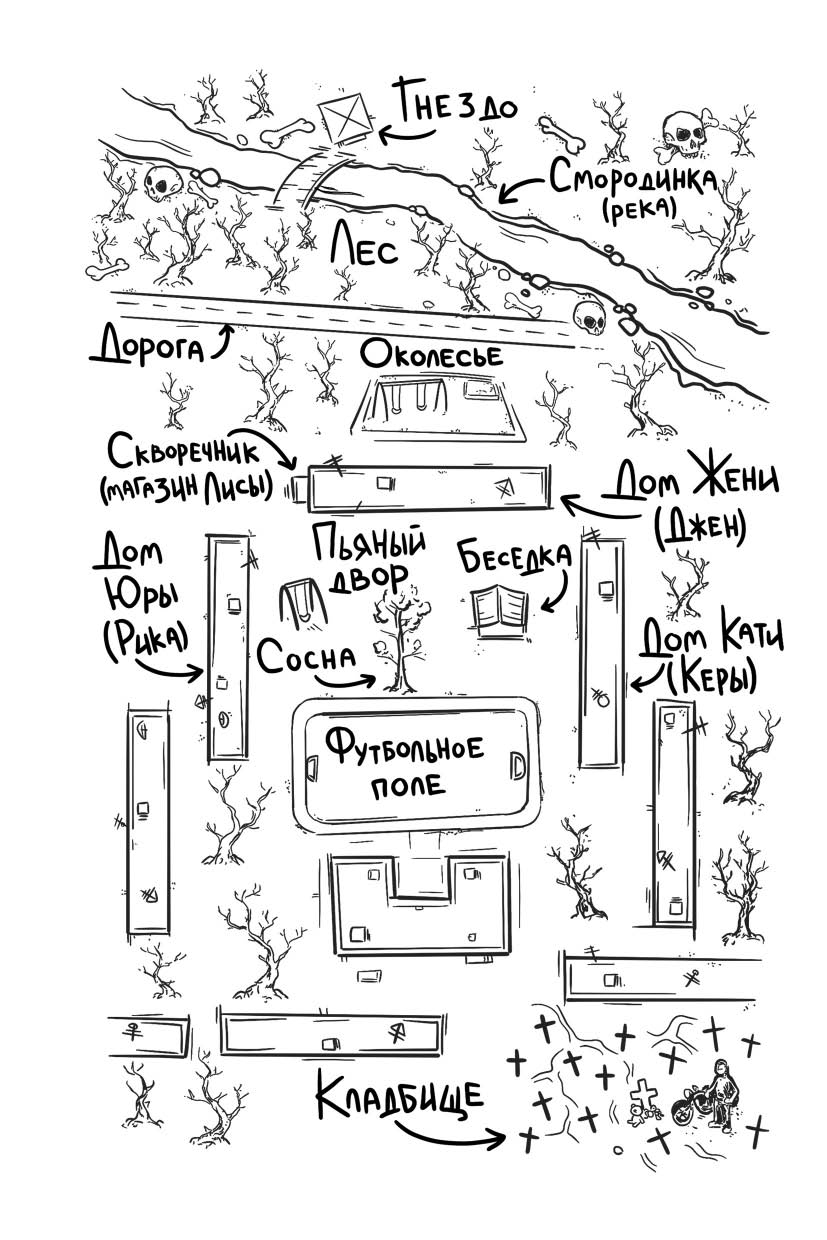 Гнездо
Смородинка
(река)
Лес
Дорога
Околесье
Скворечник
(магазин Лисы)
Дом Жени
(Джен)
Дом
Юры
(Рика)
Пьяный
двор
Беседка
Сосна
Дом Кати
(Керы)
Футбольное
поле
Кладбище